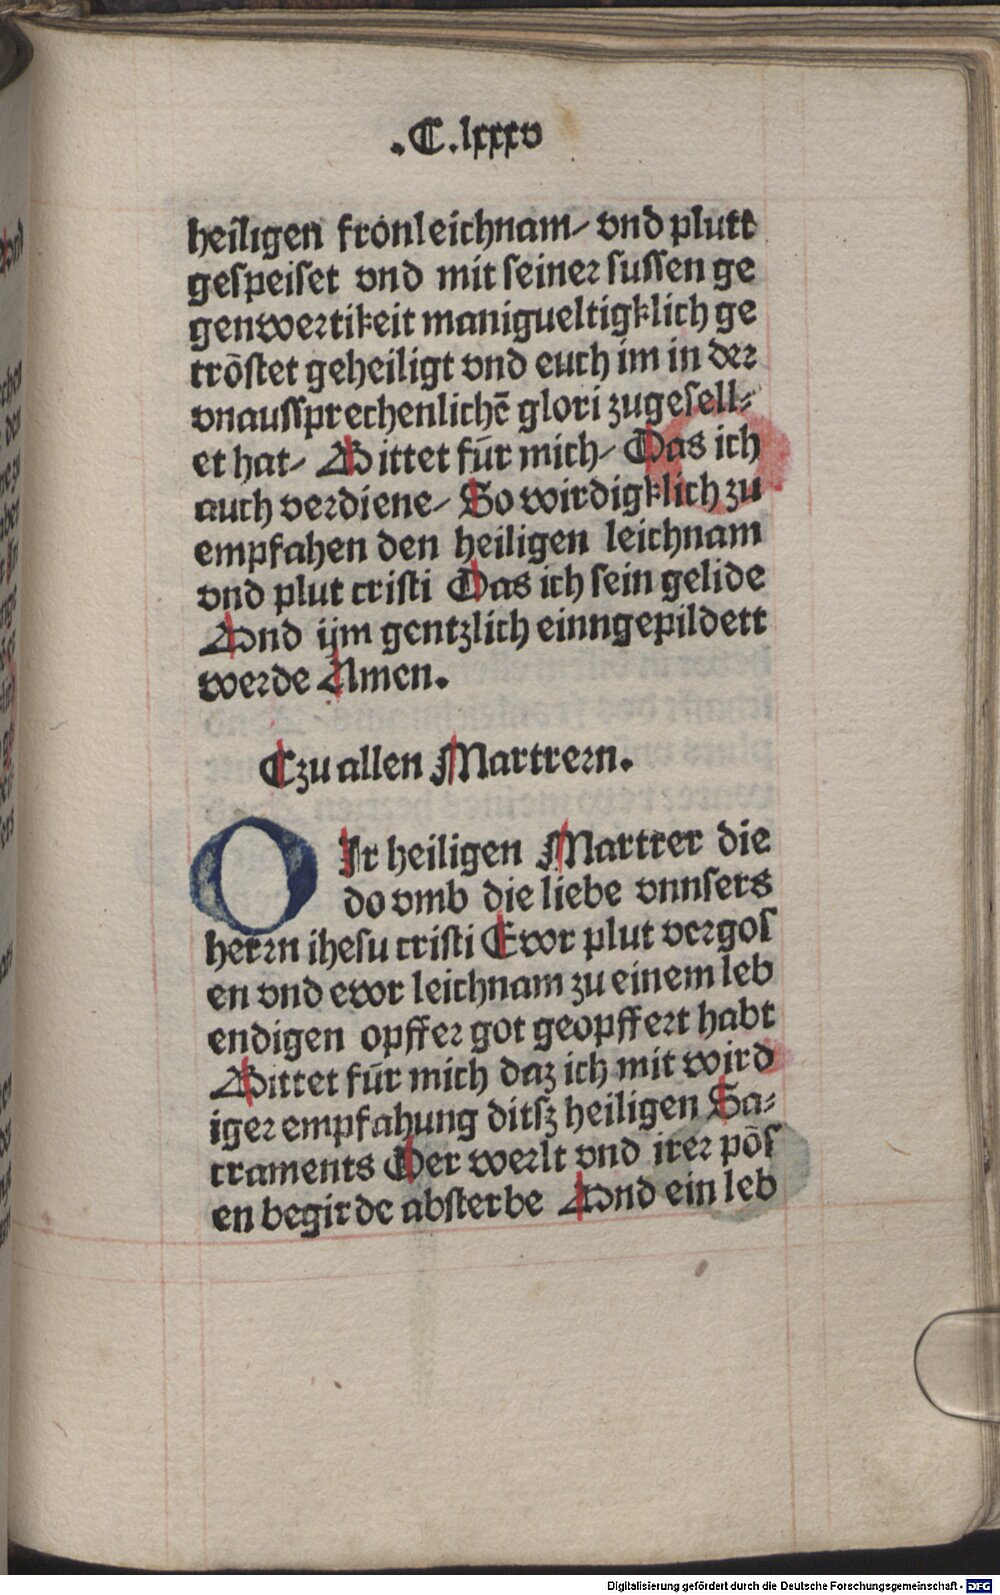 .C.lxxxv
heiligen fronleichnam/ vnd plutt
gespeiset vnd mit seiner sussen ge
genwertikeit manigueltigklich ge
trőstet geheiligt vnd euch im in der
vnaussprechenlichē glori zugesell⸗
et hat/ Bittet fur mich/ Das ich
auch verdiene/ So wirdigklich zu
empfahen den heiligen leichnam
vnd plut cristi Das ich sein gelide
Vnd ijm gentzlich einngepildett
werde Amen.
Czu allen Martrern.
O Ir heiligen Martrer die
do vmb die liebe vnnsers
herrn ihesu cristi Ewr plut vergos
en vnd ewr leichnam zu einem leb
endigen opffer got geopffert habt
Bittet fur mich daz ich mit wird
iger empfahung ditsz heiligen Sa⸗
craments Der werlt vnd irer pős
en begirde absterbe Vnd ein leb
Digitalisierung gefördert durch die Deutsche Forschungsgemeinschaft - DFG